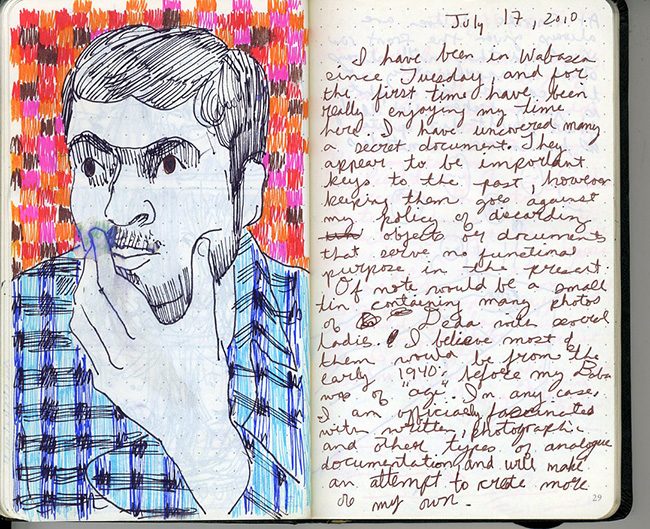 July 17 2010.
I have been in Wabasca
since Tuesday, and for
the first time have been
really enjoying my time
here. I have uncovered many
a secret document. They
appear to be important
keys to the past, however
keeping them goes against
my policy of discarding
objects or documents
that serve no functional
purpose in the present.
Of note would be a small
tin containing many photos
of Deda with several
ladies. I believe most of
them would be from the
early 1940s, before my Baba
was of "age". In any case,
I am officially fascinated
with written, photographic
and other types of analogue
documentation, and will make
an attempt to create more
of my own.
29